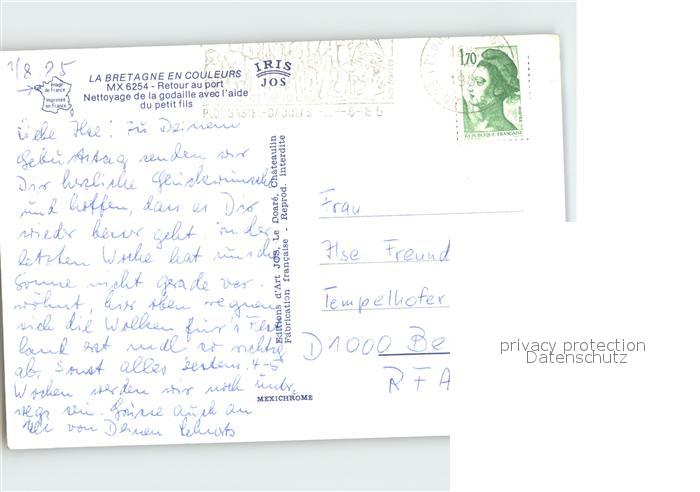 1/8.85
LA BRETAGNE EN COULEURS
MX 6254 - Retour au port
Nettoyage de la godaille avec l'aide
du petit fils
Image
de France
Imprimée
en France
IRIS
JOS
1,70
REPUBLIQUE FRANÇAISE
Liebe Ilse! Zu Deinem
Geburtstag senden wir
Dir herzliche Glückwünsche
und hoffen, dass es Dir
wieder besser geht. In der
letzten Woche hat uns die
Sonne nicht gerade ver-
wöhnt, hier oben regnen
sich die Wolken für's
land erst mal so richtig
ab. Sonst alles bestens. 4-5
Wochen werden wir noch unter-
wegs sein. Grüsse auch an
von Deinen
Editions d'Art JOS, Le Doaré, Châteaulin
Fabrication française - Reprod. interdite
MEXICHROME
Frau
Ilse Freund
Tempelhofer
D 1000 Be
RFA
privacy protection
Datenschutz